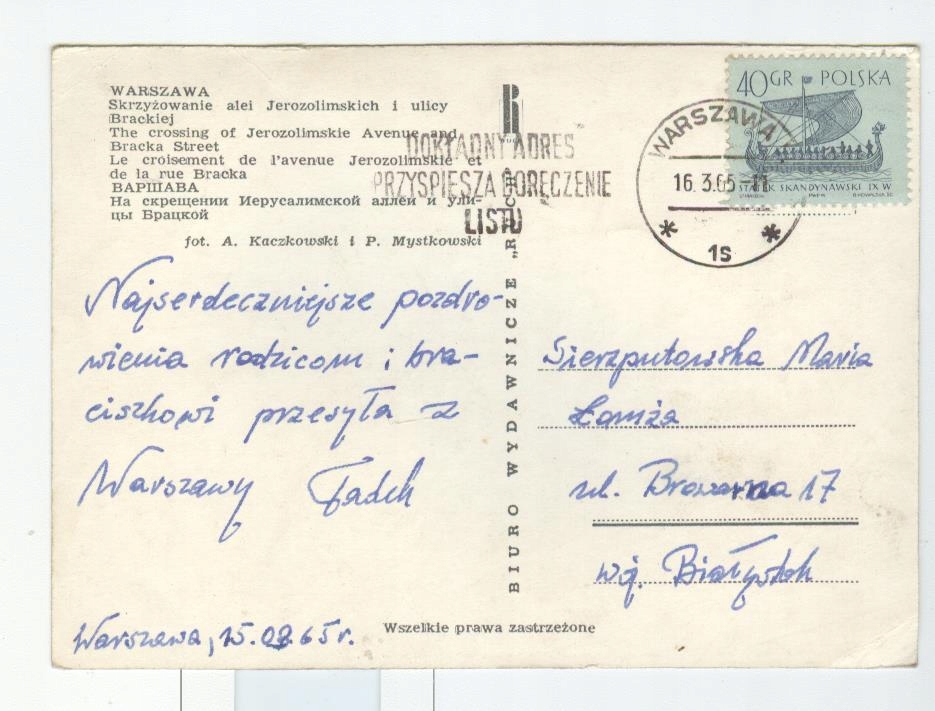 WARSZAWA
Skrzyżowanie alei Jerozolimskich i ulicy
Brackiej
The crossing of Jerozolimskie Avenue and
Bracka Street
Le croisement de l'avenue Jerozolimskie et
de la rue Bracka
ВАРШАВА
На скрещении Иерусалимской аллеи и ули-
цы Брацкой
fot. A. Kaczkowski i P. Mystkowski
DOKŁADNY ADRES
PRZYSPIESZA DORĘCZENIE
LISTU
WARSZAWA
16.3.65-11
* 1S *
40GR POLSKA
SKANDYNAWSKI IX W
Najserdeczniejsze pozdro-
wienia rodzicom i bra-
ciszkowi przesyła z
Warszawy Tadek
Warszawa, 15.03.65r.
BIURO WYDAWNICZE „RUCH"
Sierzputowska Maria
Łomża
ul. Browarna 17
woj. Białystok
Wszelkie prawa zastrzeżone